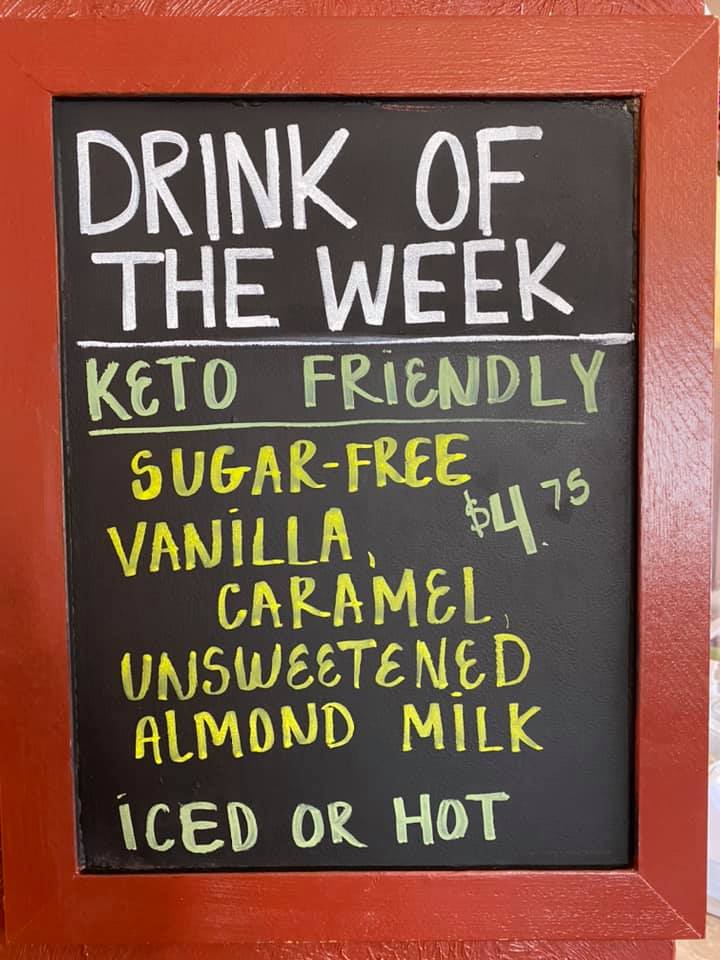 DRINK OF
THE WEEK
KETO FRIENDLY
SUGAR-FREE
$4.75
VANILLA,
CARAMEL,
UNSWEETENED
ALMOND MILK
ICED OR HOT